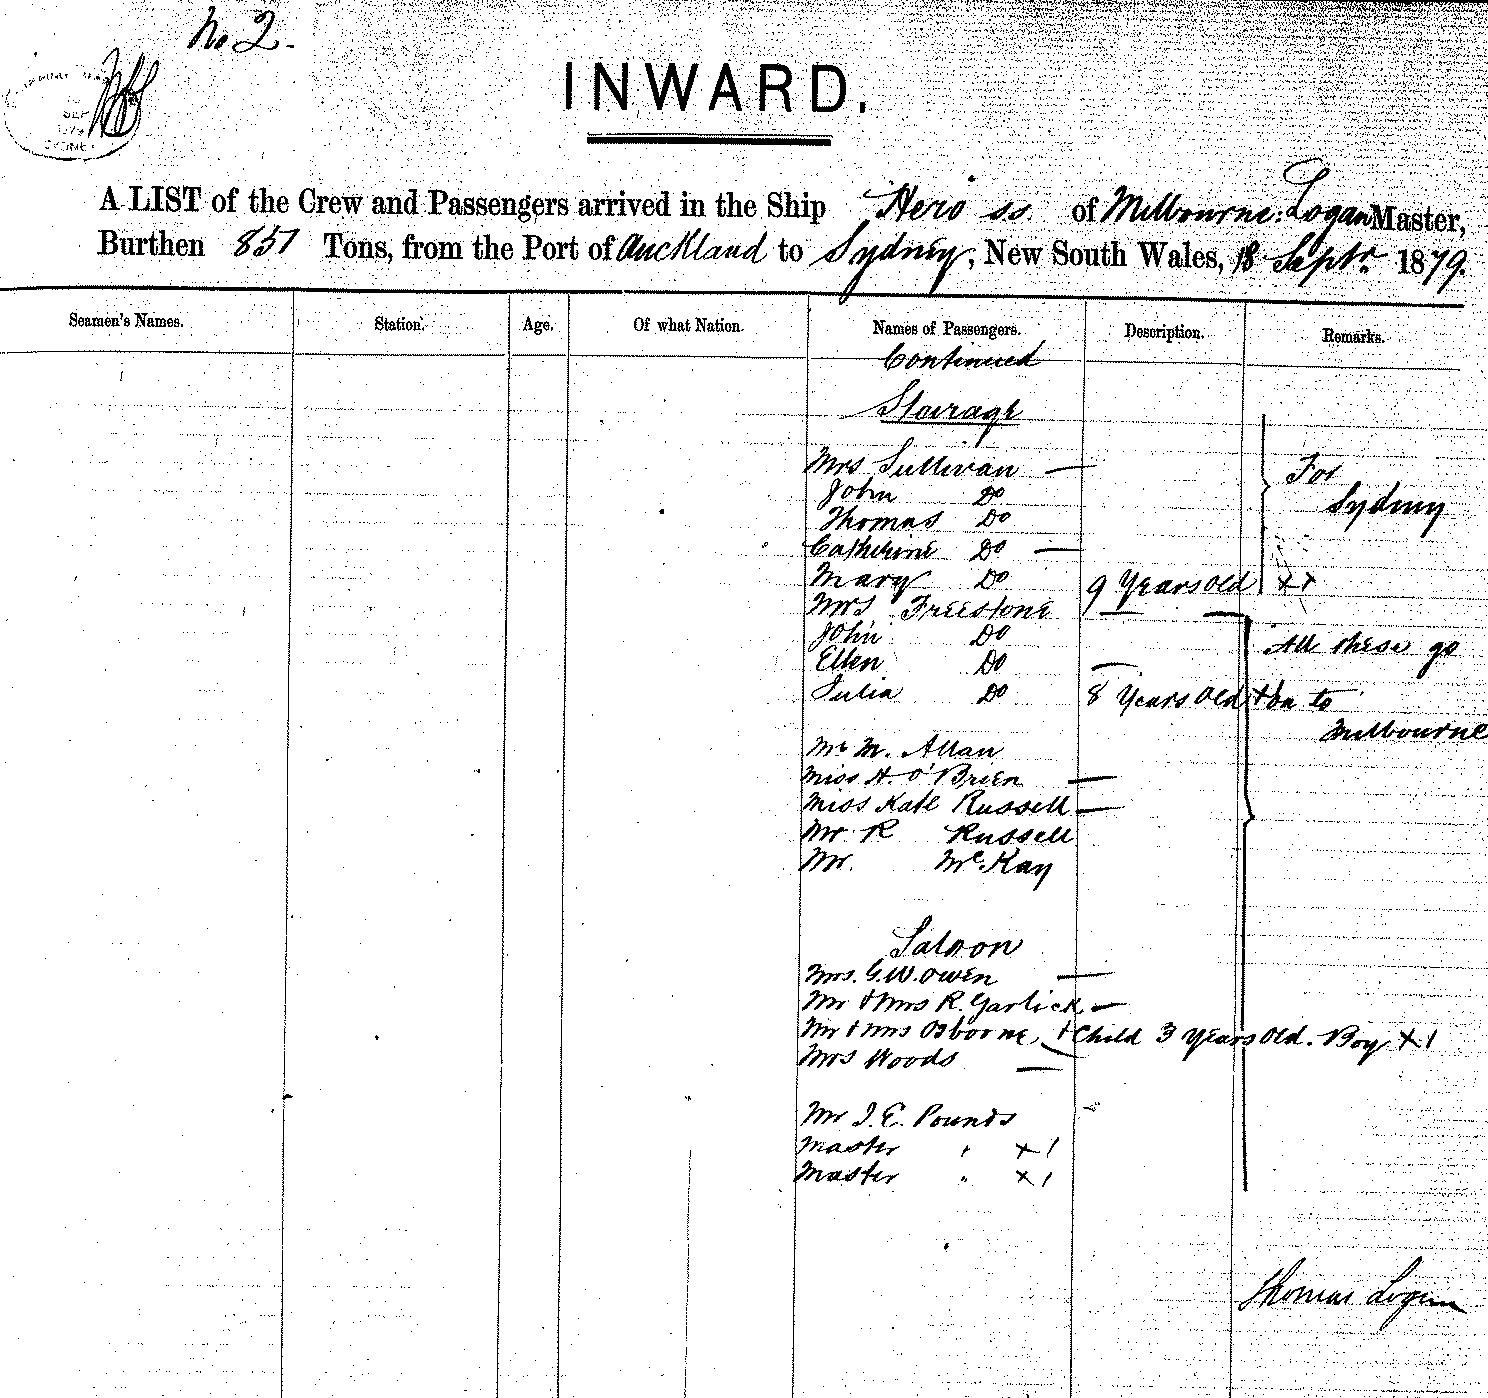 No 2.
SEP
SYDNEY
INWARD.
A LIST of the Crew and Passengers arrived in the Ship Hero ss. of Melbourne. Logan Master,
Burthen 851 Tons, from the Port of Auckland to Sydney, New South Wales, 18 Septr. 1879.
Seamen's Names. Station. Age. Of what Nation. Names of Passengers. Description. Remarks.
Continued
Stairage
Mrs Sullivan —
John Do
For
Thomas Do
Sydney
Catherine Do —
Mary Do 9 Years Old ++
Mrs Freestone
John Do
All these go
Ellen Do
Julia Do 8 Years Old + on to
Melbourne
Mr M. Allan
Miss H. O'Brien —
Miss Kate Russell —
Mr R Russell
Mr. McKay
Saloon
Mrs. G.W. Owen —
Mr + Mrs R. Garlick —
Mr + Mrs Osborne, + Child 3 Years Old. Boy X 1
Mrs Woods —
Mr J. E. Pounds
Master " X 1
Master " X 1
Thomas Logan